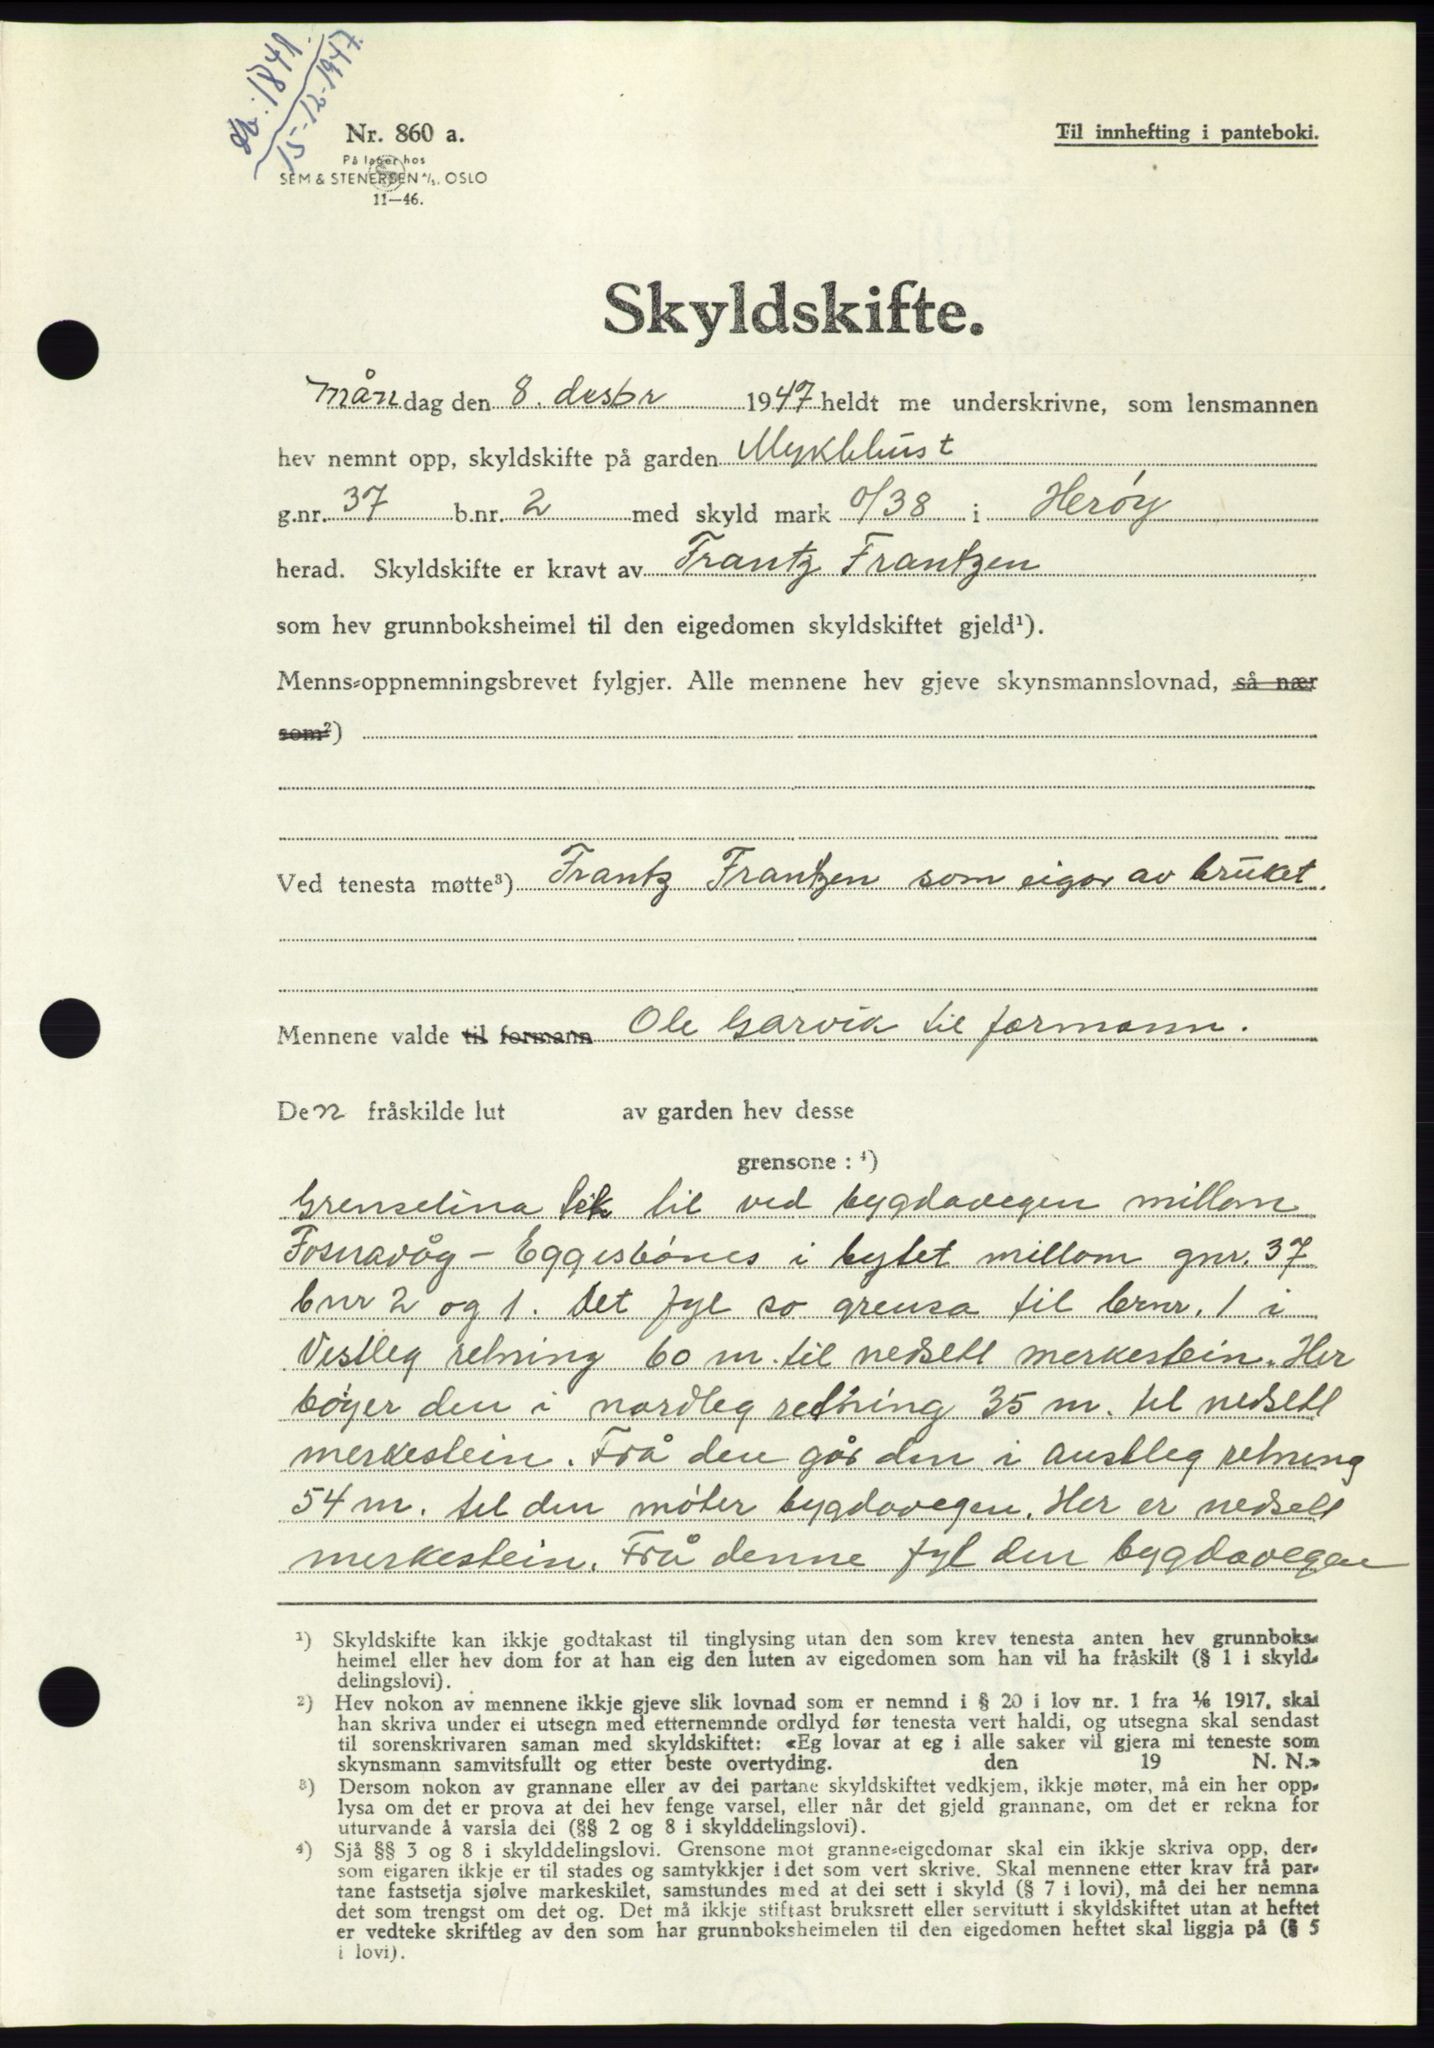 Nr. 1841
15-12-1947.
Nr. 860 a.
På lager hos
SEM & STENERSEN A/S. OSLO
11—46.
Til innhefting i panteboki.
Skyldskifte.
Måndag den 8. desbr 1947 heldt me underskrivne, som lensmannen
hev nemnt opp, skyldskifte på garden Myklebust
g.nr. 37 b.nr. 2 med skyld mark 0/38 i Herøy
herad. Skyldskifte er kravt av Frantz Frantzen
som hev grunnboksheimel til den eigedomen skyldskiftet gjeld¹).
Menns-oppnemningsbrevet fylgjer. Alle mennene hev gjeve skynsmannslovnad, så nær
som²)
Ved tenesta møtte³) Frantz Frantzen som eigar av bruket.
Mennene valde til formann Ole Garvik til formann.
Den fråskilde lut av garden hev desse
grensone : ⁴)
Grenselina tek til ved bygdavegen millom
Fosnavåg - Eggesbønes i bytet millom gnr. 37
bnr 2 og 1. Det fyl so grensa til brnr. 1 i
Vestleg retning 60 m. til nedsett merkestein. Her
bøyer den i nordleg retning 35 m. til nedsett
merkestein. Frå den går den i austleg retning
54 m. til den møter bygdavegen. Her er nedsett
merkestein. Frå denne fyl den bygdavegen
¹) Skyldskifte kan ikkje godtakast til tinglysing utan den som krev tenesta anten hev grunnboks-
heimel eller hev dom for at han eig den luten av eigedomen som han vil ha fråskilt (§ 1 i skyld-
delingslovi).
²) Hev nokon av mennene ikkje gjeve slik lovnad som er nemnd i § 20 i lov nr. 1 fra 1/6 1917, skal
han skriva under ei utsegn med etternemnde ordlyd før tenesta vert haldi, og utsegna skal sendast
til sorenskrivaren saman med skyldskiftet: «Eg lovar at eg i alle saker vil gjera mi teneste som
skynsmann samvitsfullt og etter beste overtyding. den 19 N. N.»
³) Dersom nokon av grannane eller av dei partane skyldskiftet vedkjem, ikkje møter, må ein her opp-
lysa om det er prova at dei hev fenge varsel, eller når det gjeld grannane, om det er rekna for
uturvande å varsla dei (§§ 2 og 8 i skylddelingslovi).
⁴) Sjå §§ 3 og 8 i skylddelingslovi. Grensone mot granne-eigedomar skal ein ikkje skriva opp, der-
som eigaren ikkje er til stades og samtykkjer i det som vert skrive. Skal mennene etter krav frå par-
tane fastsetja sjølve markeskilet, samstundes med at dei sett i skyld (§ 7 i lovi), må dei her nemna
det som trengst om det og. Det må ikkje stiftast bruksrett eller servitutt i skyldskiftet utan at heftet
er vedteke skriftleg av den som har grunnboksheimelen til den eigedomen heftet skal liggja på (§ 5
i lovi).